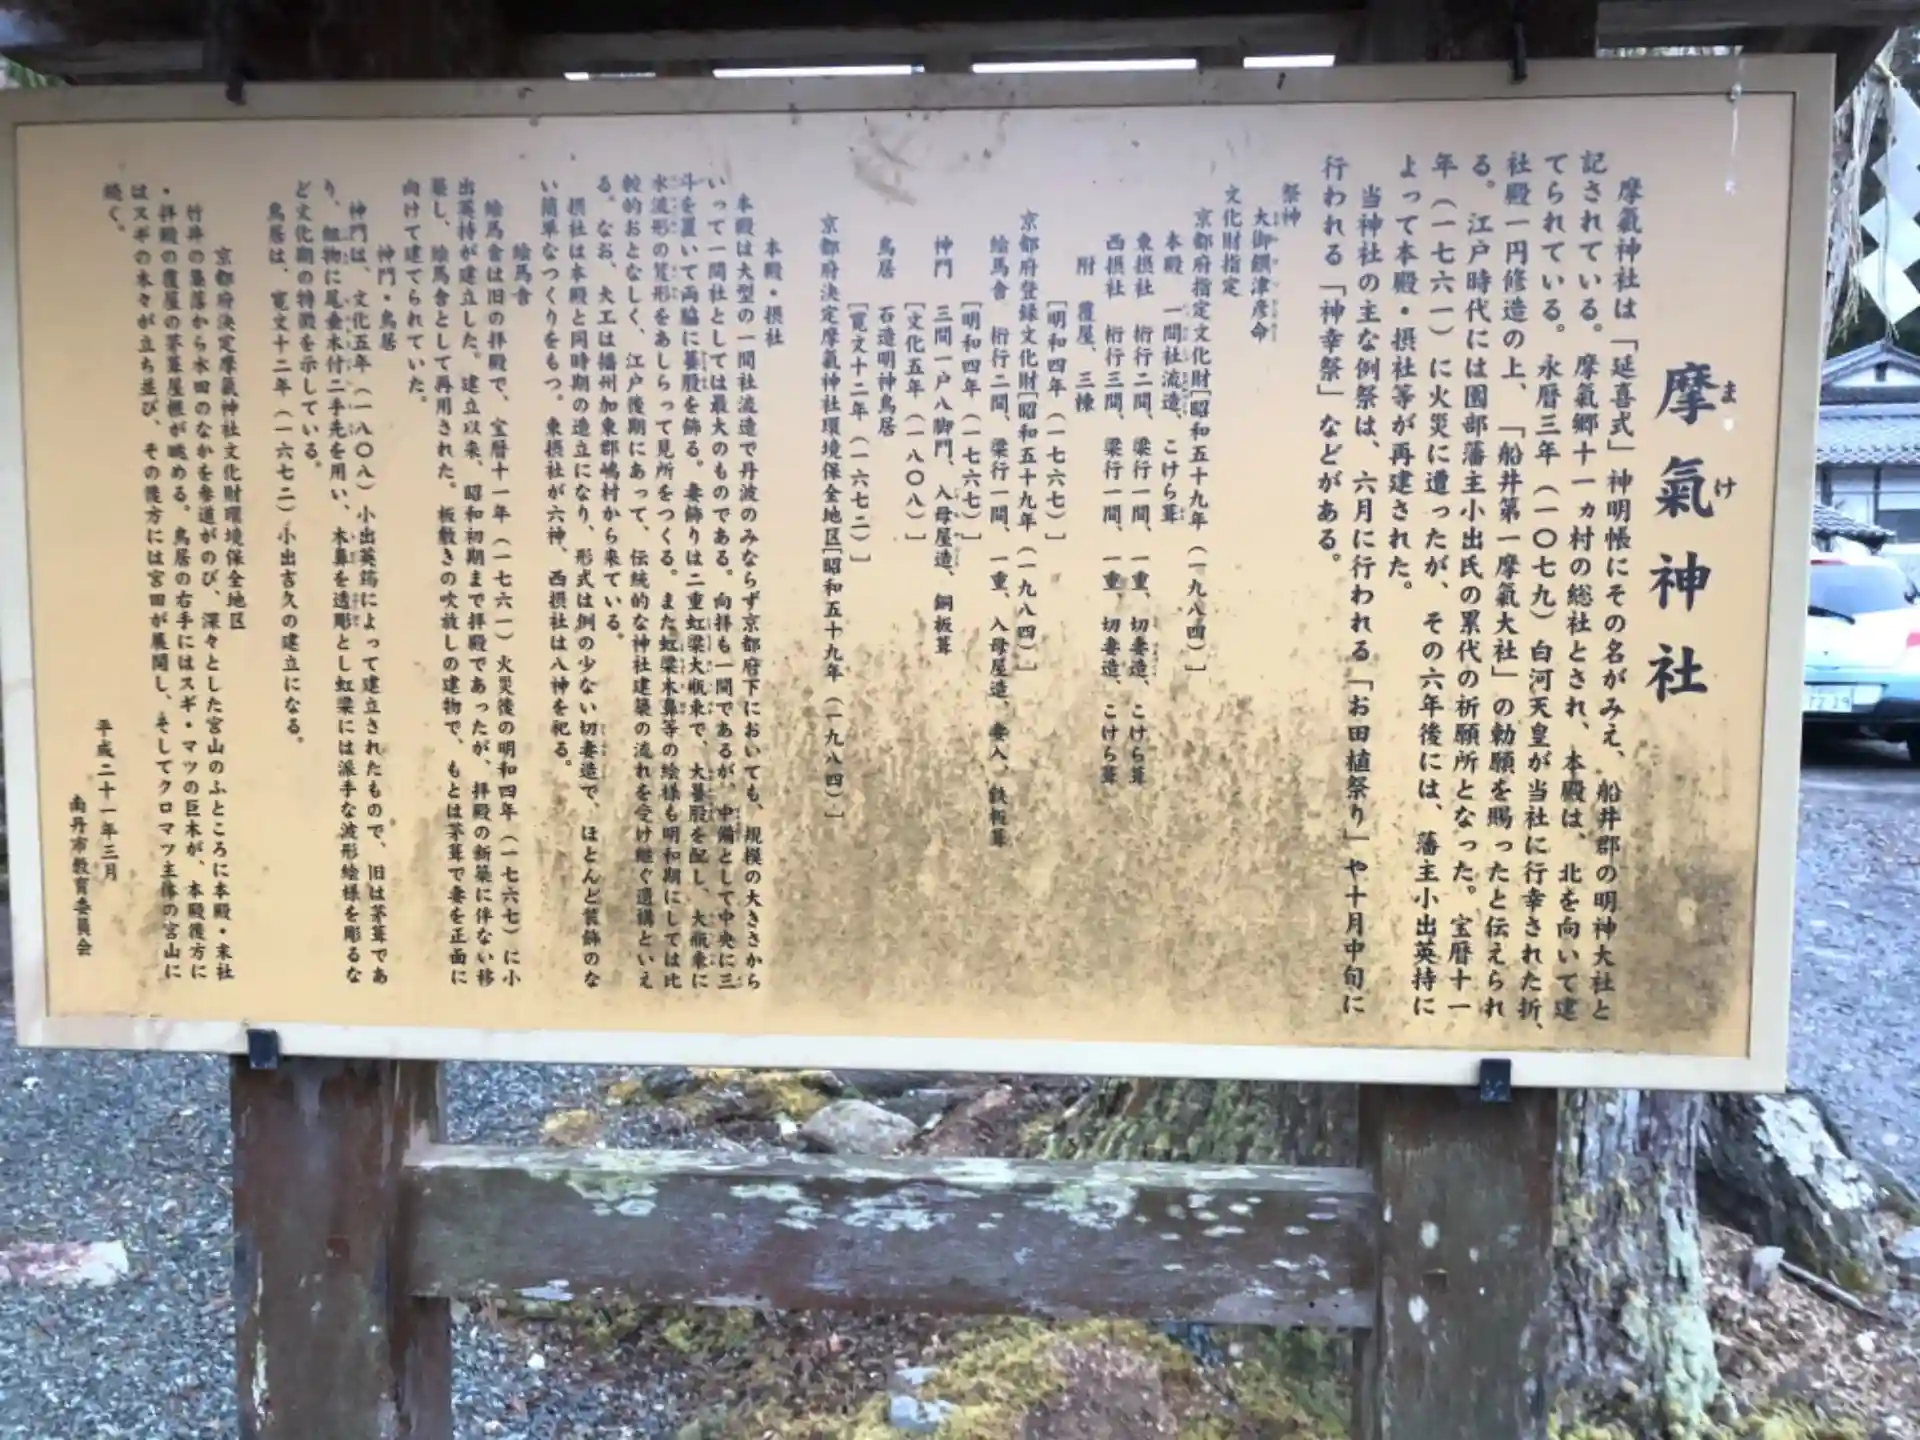 摩氣神社
まけ
摩氣神社は「延喜式」神明帳にその名がみえ、船井郡の明神大社と
記されている。摩氣郷十一ヵ村の総社とされ、本殿は、北を向いて建
てられている。永暦三年（一〇七九）白河天皇が当社に行幸された折、
社殿一円修造の上、「船井第一摩氣大社」の勅願を賜ったと伝えられ
る。江戸時代には園部藩主小出氏の累代の祈願所となった。宝暦十一
年（一七六一）に火災に遭ったが、その六年後には、藩主小出英持に
よって本殿・摂社等が再建された。
当神社の主な例祭は、六月に行われる「お田植祭り」や十月中旬に
行われる「神幸祭」などがある。
祭神
大御饌津彦命
文化財指定
京都府指定文化財［昭和五十九年（一九八四）］
本殿 一間社流造、こけら葺
東摂社 桁行二間、梁行一間、一重、切妻造、こけら葺
西摂社 桁行三間、梁行一間、一重、切妻造、こけら葺
附 覆屋、三棟
［明和四年（一七六七）］
京都府登録文化財［昭和五十九年（一九八四）］
絵馬舎 桁行二間、梁行一間、一重、入母屋造、妻入、鉄板葺
［明和四年（一七六七）］
神門 三間一戸八脚門、入母屋造、銅板葺
［文化五年（一八〇八）］
鳥居 石造明神鳥居
［寛文十二年（一六七二）］
京都府決定摩氣神社環境保全地区［昭和五十九年（一九八四）］
本殿・摂社
本殿は大型の一間社流造で丹波のみならず京都府下においても、規模の大きさから
いって一間社としては最大のものである。向拝も一間であるが、中備として中央に三
斗を置いて両脇に蟇股を飾る。妻飾りは二重虹梁大瓶束で、大蟇股を配し、大瓶束に
水波形の笈形をあしらって見所をつくる。また虹梁木鼻等の絵様も明和期にしては比
較的おとなしく、江戸後期にあって、伝統的な神社建築の流れを受け継ぐ遺構といえ
る。なお、大工は播州加東郡嶋村から来ている。
摂社は本殿と同時期の造立になり、形式は例の少ない切妻造で、ほとんど装飾のな
い簡単なつくりをもつ。東摂社が六神、西摂社は八神を祀る。
絵馬舎
絵馬舎は旧の拝殿で、宝暦十一年（一七六一）火災後の明和四年（一七六七）に小
出英持が建立した。建立以来、昭和初期まで拝殿であったが、拝殿の新築に伴ない移
築し、絵馬舎として再用された。板敷きの吹放しの建物で、もとは茅葺で妻を正面に
向けて建てられていた。
神門・鳥居
神門は、文化五年（一八〇八）小出英筠によって建立されたもので、旧は茅葺であ
り、組物に尾垂木付二手先を用い、木鼻を造彫とし虹梁には派手な波形絵様を彫るな
ど文化期の特徴を示している。
鳥居は、寛文十二年（一六七二）小出吉久の建立になる。
京都府決定摩氣神社文化財環境保全地区
竹井の集落から水田のなかを参道がのび、深々とした宮山のふところに本殿・末社
・拝殿の覆屋の茅葺屋根が眺める。鳥居の右手にはスギ・マツの巨木が、本殿後方に
はスギの木々が立ち並び、その後方には宮田が展開し、そしてクロマツ主体の宮山に
続く。
平成二十一年三月
南丹市教育委員会